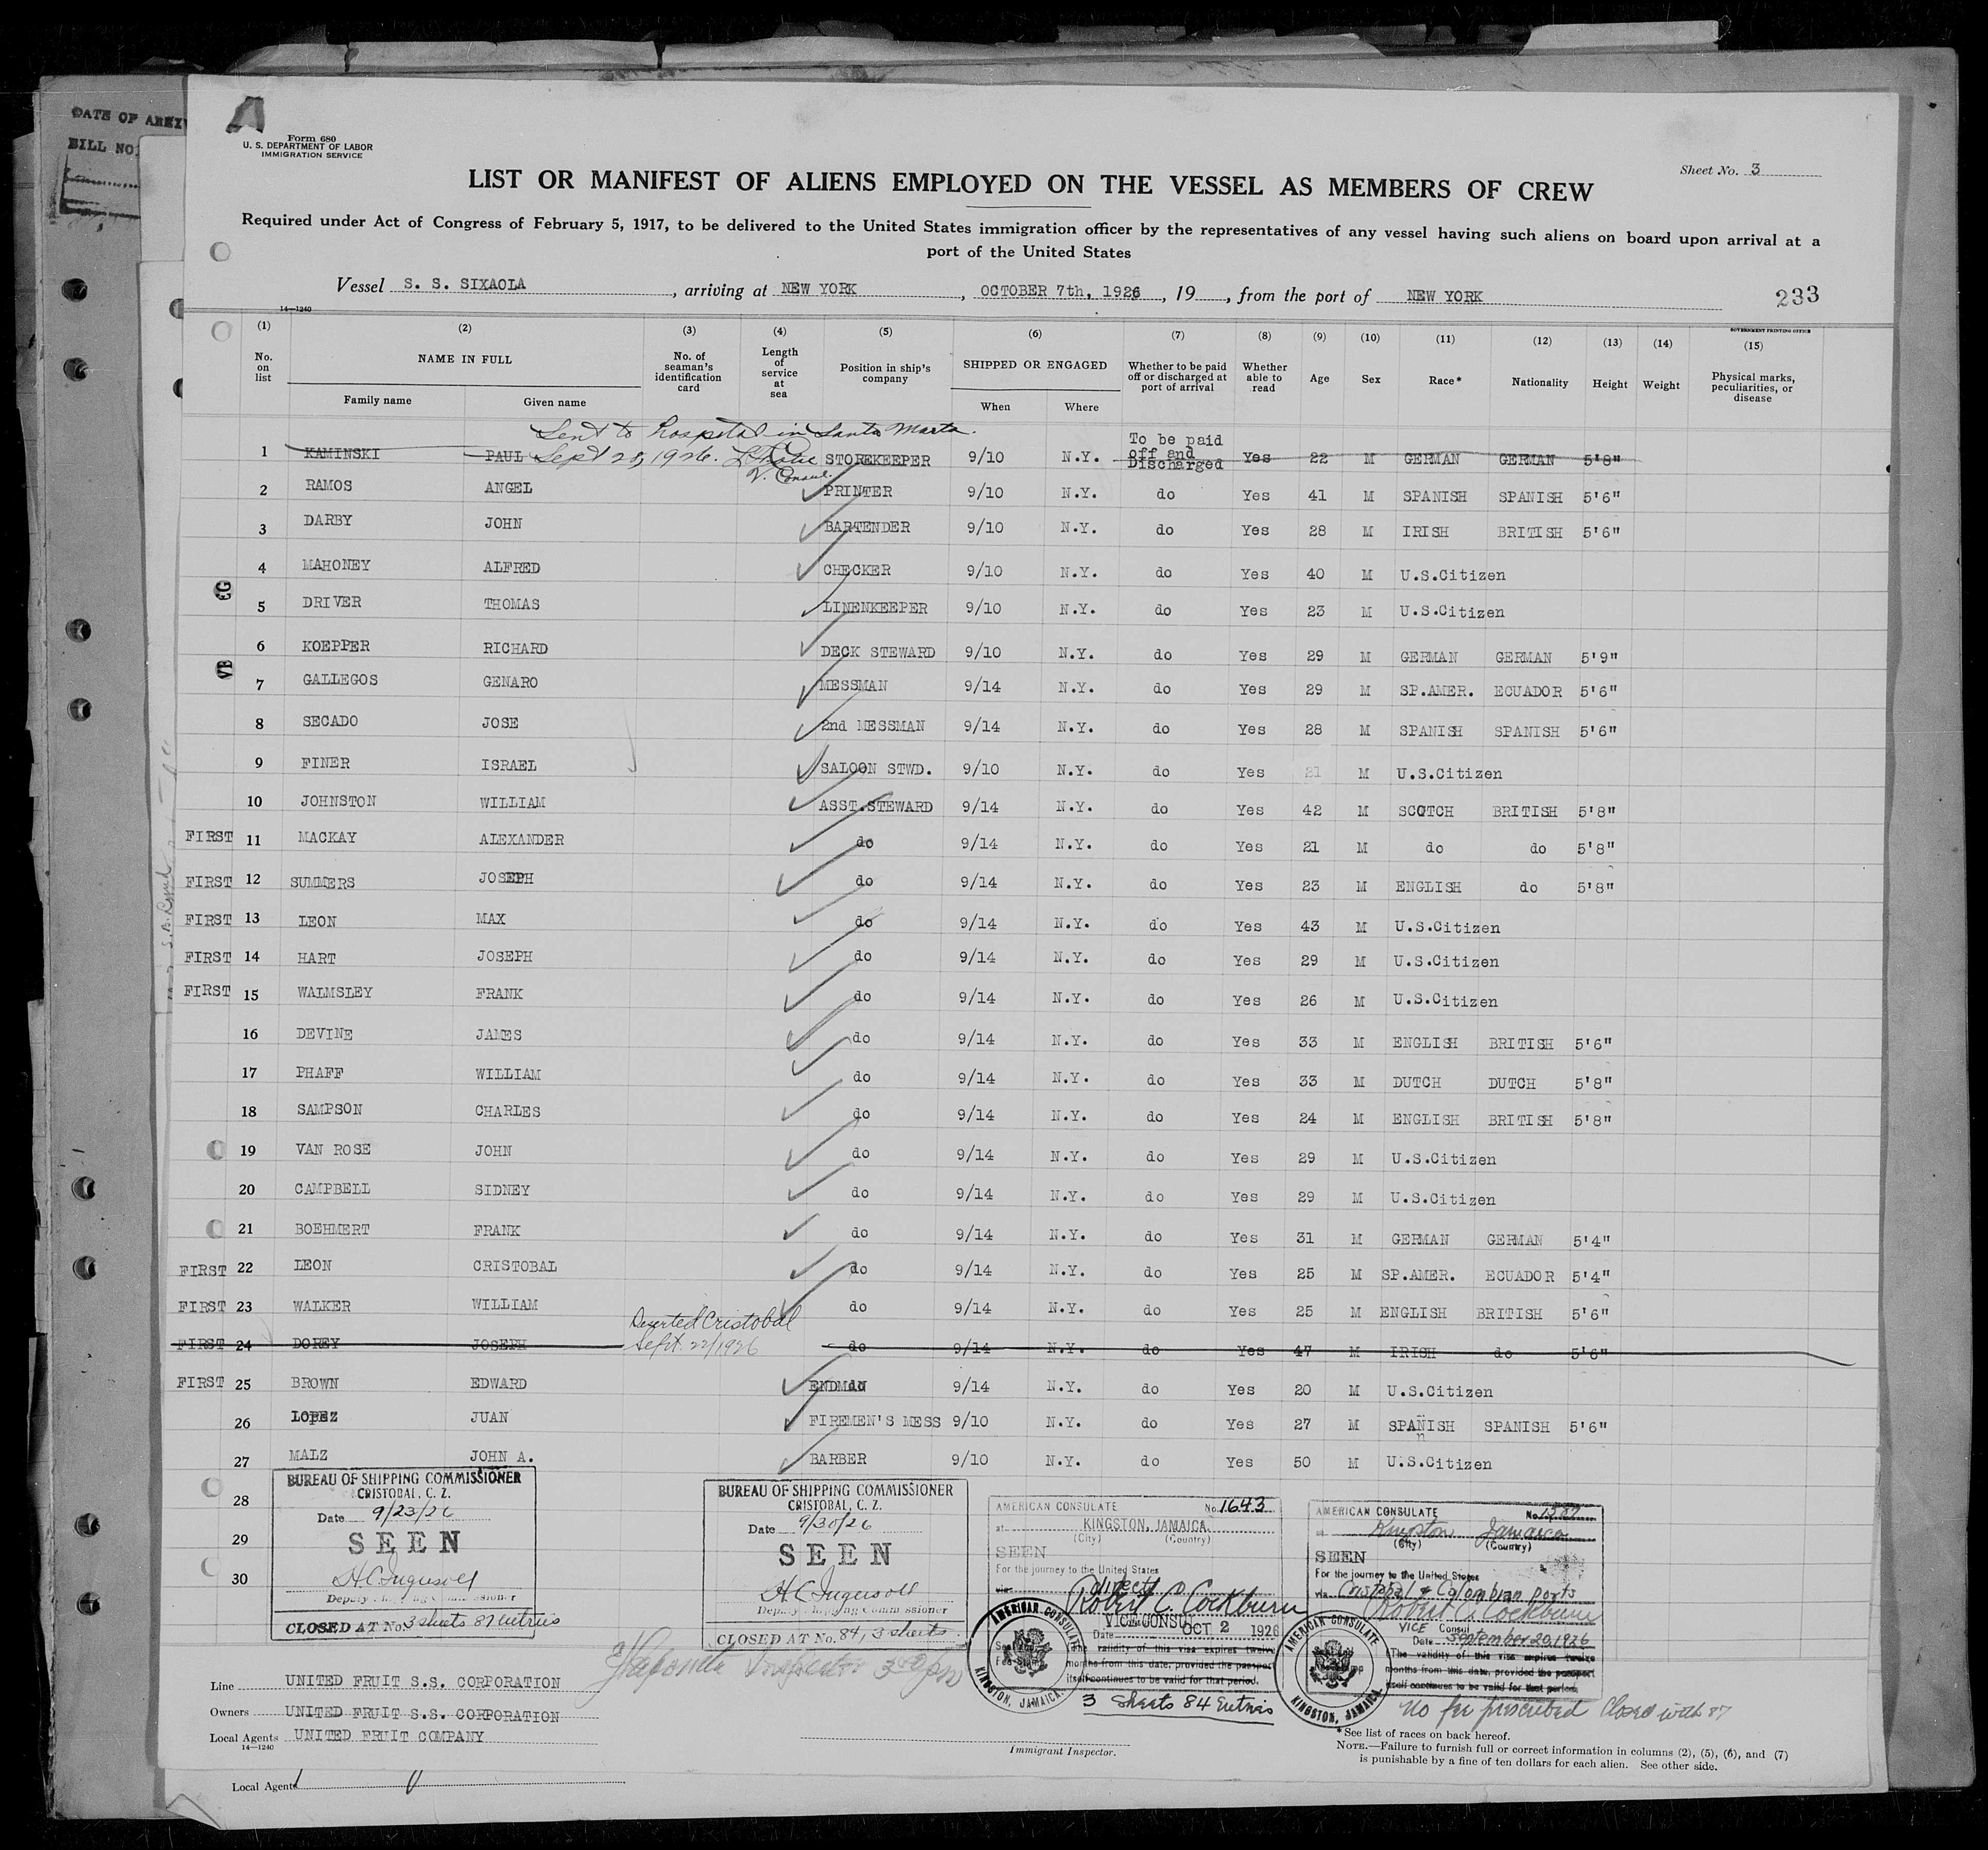 A
DATE OF
BILL NO
Form 680
U. S. DEPARTMENT OF LABOR
IMMIGRATION SERVICE
Sheet No. 3
LIST OR MANIFEST OF ALIENS EMPLOYED ON THE VESSEL AS MEMBERS OF CREW
Required under Act of Congress of February 5, 1917, to be delivered to the United States immigration officer by the representatives of any vessel having such aliens on board upon arrival at a
port of the United States
Vessel S. S. SIXAOLA, arriving at NEW YORK, OCTOBER 7th, 1926, 19, from the port of NEW YORK
233
14—1240
GOVERNMENT PRINTING OFFICE
(1) (2) (3) (4) (5) (6) (7) (8) (9) (10) (11) (12) (13) (14) (15)
No. on list NAME IN FULL Family name Given name No. of seaman's identification card Length of service at sea Position in ship's company SHIPPED OR ENGAGED When Where Whether to be paid off or discharged at port of arrival Whether able to read Age Sex Race* Nationality Height Weight Physical marks, peculiarities, or disease
Sent to hospital in Santa Marta.
1 KAMINSKI PAUL Sept 28, 1926. V. Consul STOREKEEPER 9/10 N.Y. To be paid off and Discharged Yes 22 M GERMAN GERMAN 5'8"
2 RAMOS ANGEL PRINTER 9/10 N.Y. do Yes 41 M SPANISH SPANISH 5'6"
3 DARBY JOHN BARTENDER 9/10 N.Y. do Yes 28 M IRISH BRITISH 5'6"
4 MAHONEY ALFRED CHECKER 9/10 N.Y. do Yes 40 M U.S.Citizen
5 DRIVER THOMAS LINENKEEPER 9/10 N.Y. do Yes 23 M U.S.Citizen
6 KOEPPER RICHARD DECK STEWARD 9/10 N.Y. do Yes 29 M GERMAN GERMAN 5'9"
7 GALLEGOS GENARO MESSMAN 9/14 N.Y. do Yes 29 M SP.AMER. ECUADOR 5'6"
8 SECADO JOSE 2nd MESSMAN 9/14 N.Y. do Yes 28 M SPANISH SPANISH 5'6"
9 FINER ISRAEL SALOON STWD. 9/10 N.Y. do Yes 21 M U.S.Citizen
10 JOHNSTON WILLIAM ASST.STEWARD 9/14 N.Y. do Yes 42 M SCOTCH BRITISH 5'8"
FIRST 11 MACKAY ALEXANDER do 9/14 N.Y. do Yes 21 M do do 5'8"
FIRST 12 SUMMERS JOSEPH do 9/14 N.Y. do Yes 23 M ENGLISH do 5'8"
FIRST 13 LEON MAX do 9/14 N.Y. do Yes 43 M U.S.Citizen
FIRST 14 HART JOSEPH do 9/14 N.Y. do Yes 29 M U.S.Citizen
FIRST 15 WALMSLEY FRANK do 9/14 N.Y. do Yes 26 M U.S.Citizen
16 DEVINE JAMES do 9/14 N.Y. do Yes 33 M ENGLISH BRITISH 5'6"
17 PHAFF WILLIAM do 9/14 N.Y. do Yes 33 M DUTCH DUTCH 5'8"
18 SAMPSON CHARLES do 9/14 N.Y. do Yes 24 M ENGLISH BRITISH 5'8"
19 VAN ROSE JOHN do 9/14 N.Y. do Yes 29 M U.S.Citizen
20 CAMPBELL SIDNEY do 9/14 N.Y. do Yes 29 M U.S.Citizen
21 BOEHMERT FRANK do 9/14 N.Y. do Yes 31 M GERMAN GERMAN 5'4"
FIRST 22 LEON CRISTOBAL do 9/14 N.Y. do Yes 25 M SP.AMER. ECUADOR 5'4"
FIRST 23 WALKER WILLIAM do 9/14 N.Y. do Yes 25 M ENGLISH BRITISH 5'6"
Deserted Cristobal
FIRST 24 DOREY JOSEPH Sept. 22/1926 do 9/14 N.Y. do Yes 47 M IRISH do 5'6"
FIRST 25 BROWN EDWARD ENDMAN 9/14 N.Y. do Yes 20 M U.S.Citizen
26 LOPEZ JUAN FIREMEN'S MESS 9/10 N.Y. do Yes 27 M SPANISH SPANISH 5'6"
27 MALZ JOHN A. BARBER 9/10 N.Y. do Yes 50 M U.S.Citizen
28
29
30
BUREAU OF SHIPPING COMMISSIONER
CRISTOBAL, C. Z.
Date 9/23/26
SEEN
H C Ingersoll
Deputy Shipping Commissioner
CLOSED AT No. 3 sheets 87 Entries
BUREAU OF SHIPPING COMMISSIONER
CRISTOBAL, C. Z.
Date 9/30/26
SEEN
H C Ingersoll
Deputy Shipping Commissioner
CLOSED AT No. 84, 3 sheets
Inspector
AMERICAN CONSULATE No. 1643
at KINGSTON, JAMAICA.
(City) (Country)
SEEN
For the journey to the United States
via direct
Robert C. Cockburn
VICE CONSUL
Date OCT 2 1926
The validity of this visa expires twelve
months from this date, provided the passport
itself continues to be valid for that period.
AMERICAN CONSULATE
KINGSTON, JAMAICA.
3 Sheets 84 Entries
AMERICAN CONSULATE No.
at Kingston Jamaica
(City) (Country)
SEEN
For the journey to the United States
via Cristobal & Colombian Ports
Robert C. Cockburn
VICE Consul
Date September 20, 1926
The validity of this visa expires twelve
months from this date, provided the passport
itself continues to be valid for that period.
AMERICAN CONSULATE
KINGSTON, JAMAICA.
No fee prescribed Closed with 87
Line UNITED FRUIT S.S. CORPORATION
Owners UNITED FRUIT S.S. CORPORATION
Local Agents UNITED FRUIT COMPANY
14—1240
Immigrant Inspector.
*See list of races on back hereof.
NOTE.—Failure to furnish full or correct information in columns (2), (5), (6), and (7)
is punishable by a fine of ten dollars for each alien. See other side.
Local Agents